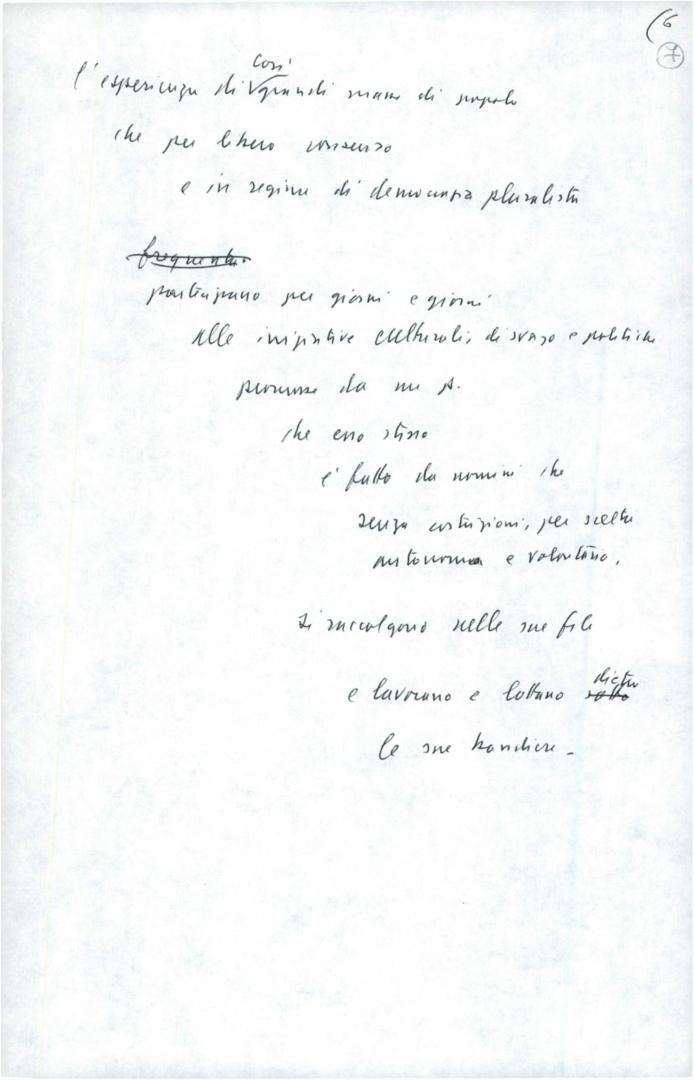 (6
7
così
l'esperienza di grandi masse di popolo
che per libero consenso
e in regime di democrazia pluralista
frequenta
partecipano per giorni e giorni
alle iniziative culturali, di svago e politiche
promosse da un p.
che esso stesso
è fatto da uomini che
senza costrizioni, per scelta
autonoma e volontaria,
si raccolgono nelle sue file
dietro
e lavorano e lottano sotto
le sue bandiere -